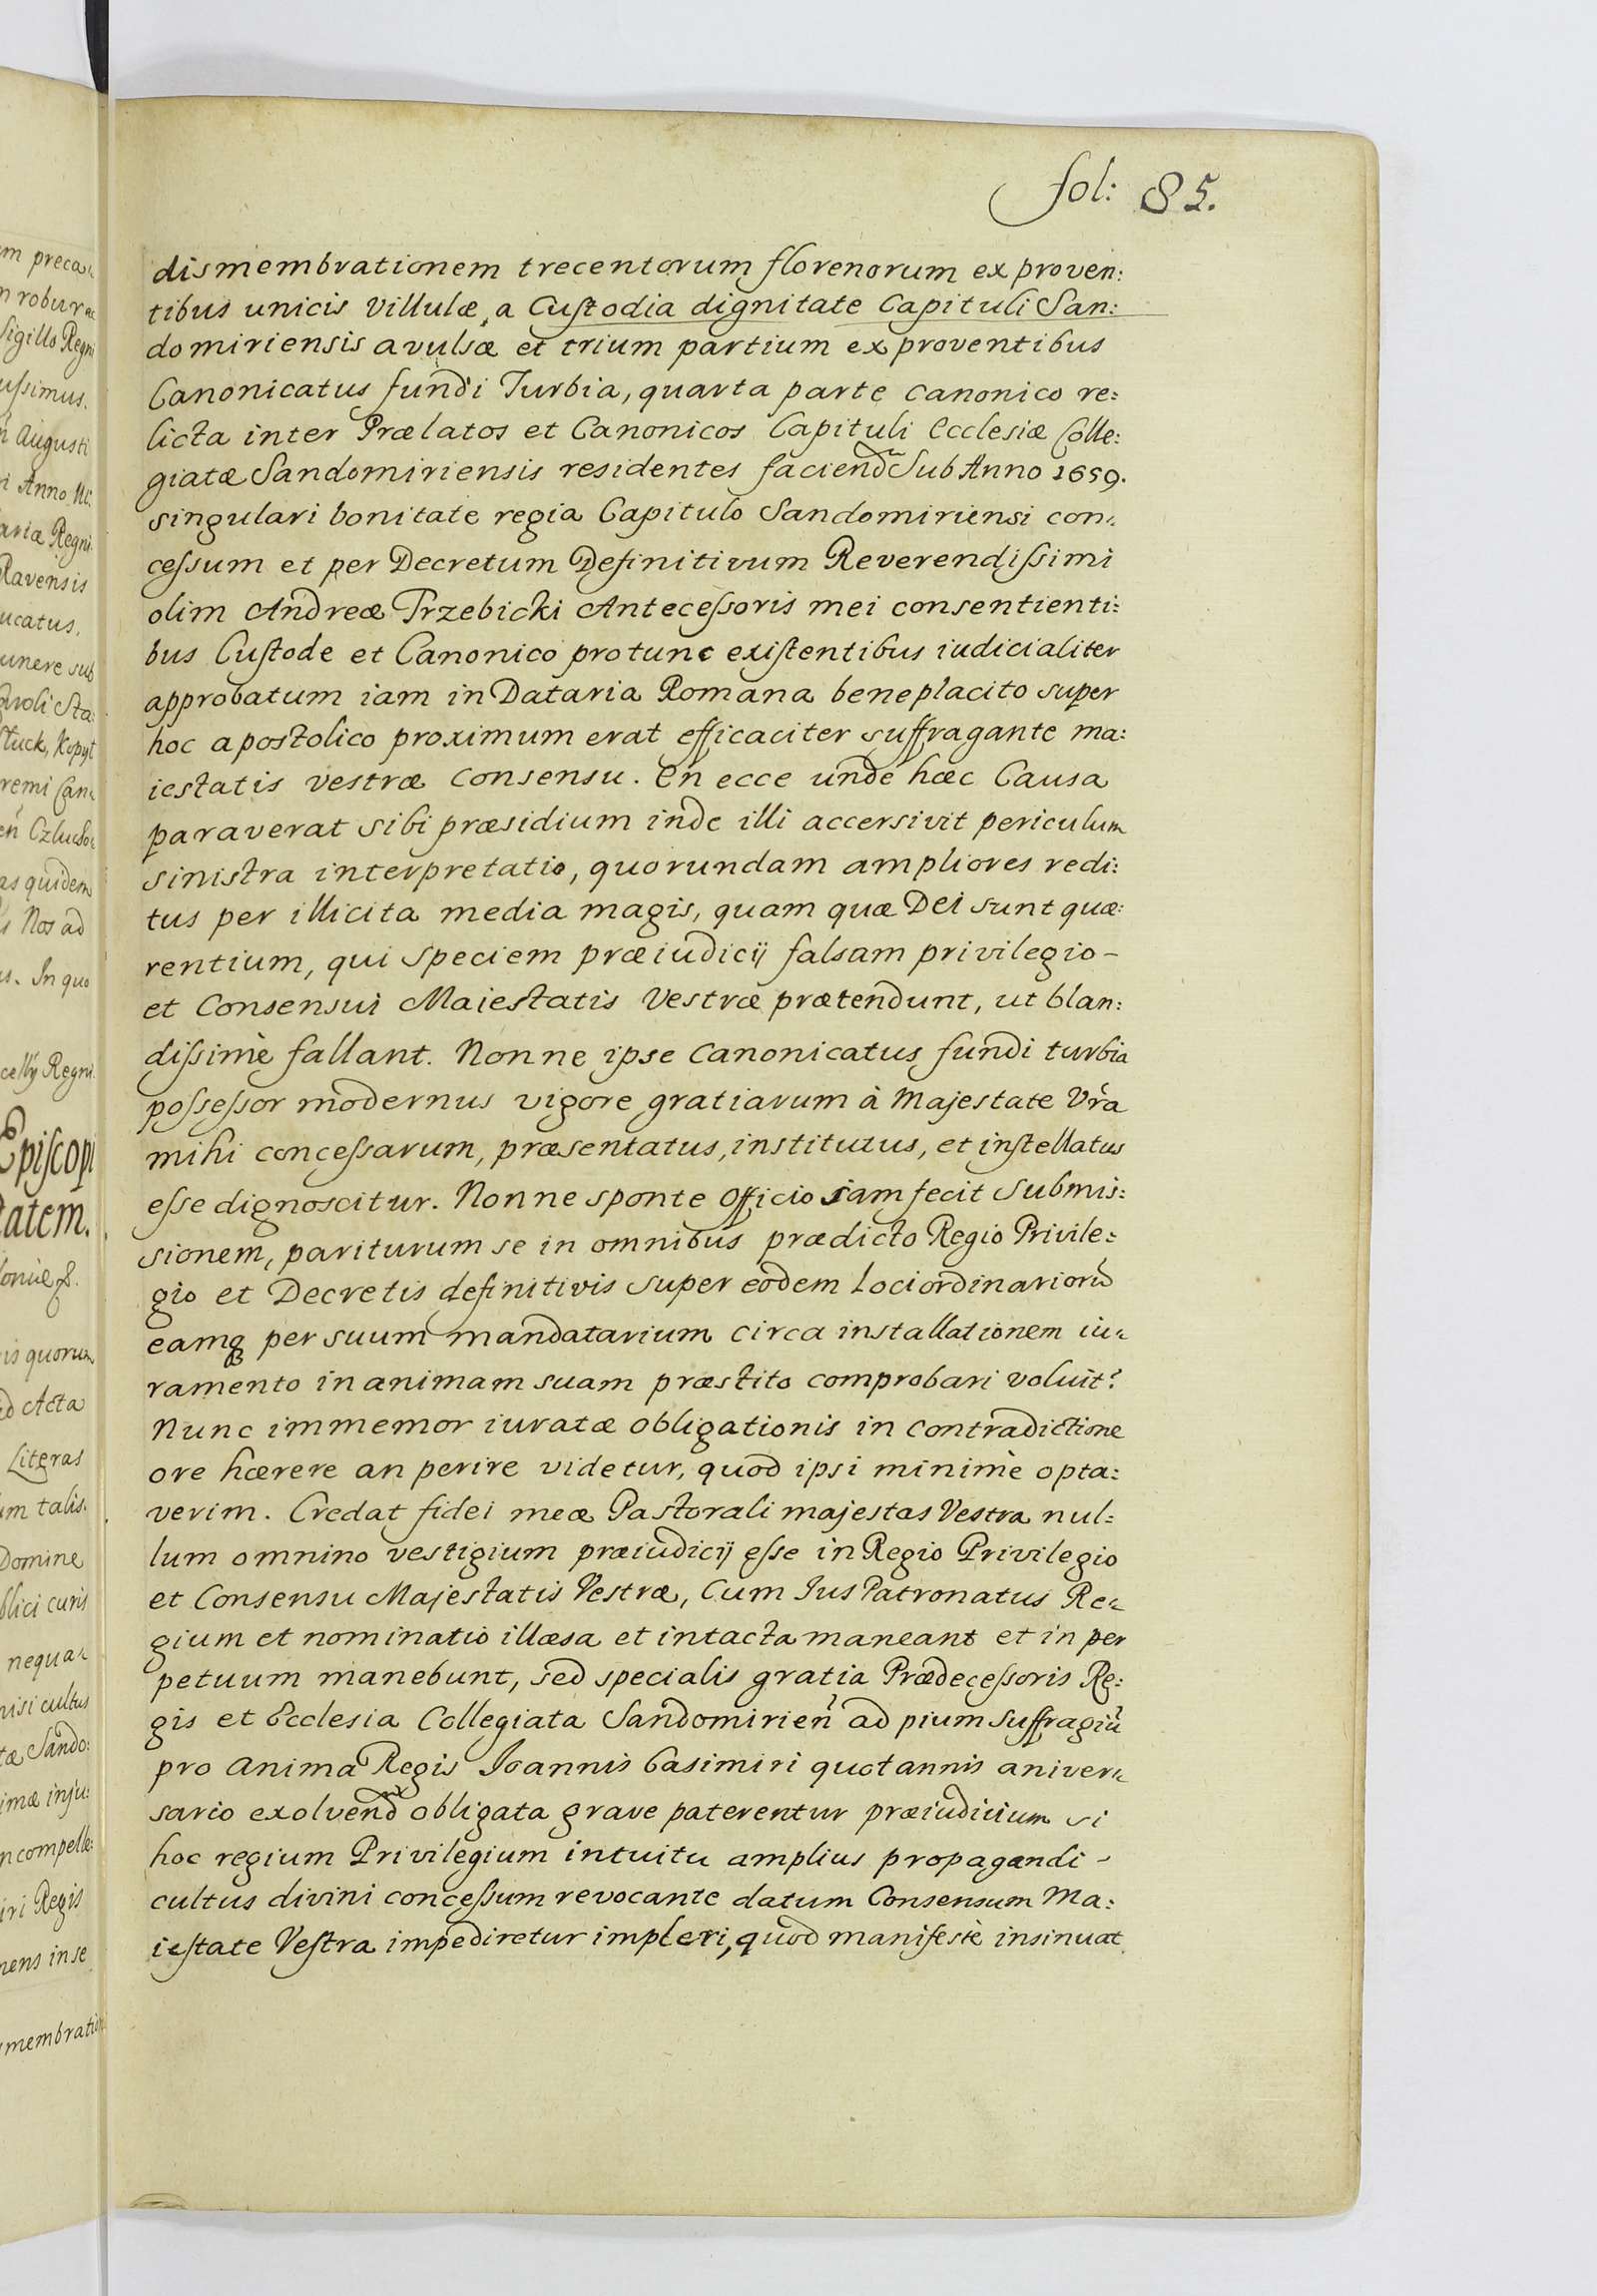 fol: 85.
dismembrationem trecentorum florenorum ex proven:
tibus unicis Villulæ, a Custodia dignitate Capituli San:
domiriensis avulsæ et trium partium ex proventibus
Canonicatus fundi Turbia, quarta parte canonico re:
licta inter Prælatos et Canonicos Capituli Ecclesiæ Colle:
giatæ Sandomiriensis residentes faciend Sub Anno 1659.
singulari bonitate regia Capitulo Sandomiriensi con:
cessum et per Decretum Definitivum Reverendissimi
olim Andreæ Trzebicki Antecessoris mei consentienti:
bus Custode et Canonico protunc existentibus iudicialiter
approbatum iam in Dataria Romana beneplacito super
hoc apostolico proximum erat efficaciter suffragante ma:
iestatis vestræ consensu. En ecce unde hæc Causa
paraverat sibi præsidium inde illi accersivit periculum
sinistra interpretatio, quorundam ampliores redi:
tus per illicita media magis, quam quæ Dei sunt quæ:
rentium, qui speciem præiudicij falsam privilegio -
et Consensui Maiestatis Vestræ prætendunt, ut blan:
dissimè fallant. Nonne ipse Canonicatus fundi turbia
possessor modernus vigore gratiarum à Majestate Vrã
mihi concessarum, præsentatus, institutus, et instellatus
esse dignoscitur. Nonne sponte officio iam fecit Submis:
sionem, pariturum se in omnibus prædicto Regio Privile:
gio et Decretis definitivis super eodem Lociordinariorũ
eamq per suum mandatarium circa installationem iu:
ramento in animam suam præstito comprobari voluit?
Nunc immemor iuratæ obligationis in contradictione
ore hærere an perire videtur, quod ipsi minimè opta:
verim. Credat fidei meæ Pastorali majestas Vestra nul:
lum omnino vestigium præiudicij esse in Regio Privilegio
et Consensu Majestatis Vestræ, Cum Ius Patronatus Re:
gium et nominatio illæsa et intacta maneant et in per
petuum manebunt, sed specialis gratia Prædecessoris Re:
gis et Ecclesia Collegiata Sandomirień ad pium suffragiũ
pro anima Regis Joannis Casimiri quotannis aniver:
sario exolvend obligata grave paterentur præiudicium si
hoc regium Privilegium intuitu amplius propagandi -
cultus divini concessum revocante datum Consensum Ma:
iestate Vestra impediretur impleri, quod manifestè insinuat